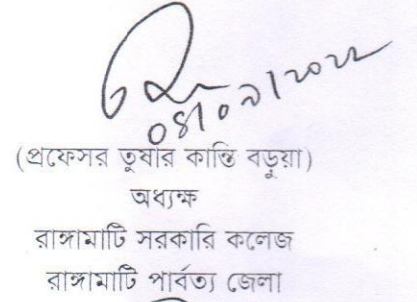 ০৪/০৯/২০২২
(প্রফেসর তুষার কান্তি বড়ুয়া)
অধ্যক্ষ
রাঙ্গামাটি সরকারি কলেজ
রাঙ্গামাটি পার্বত্য জেলা